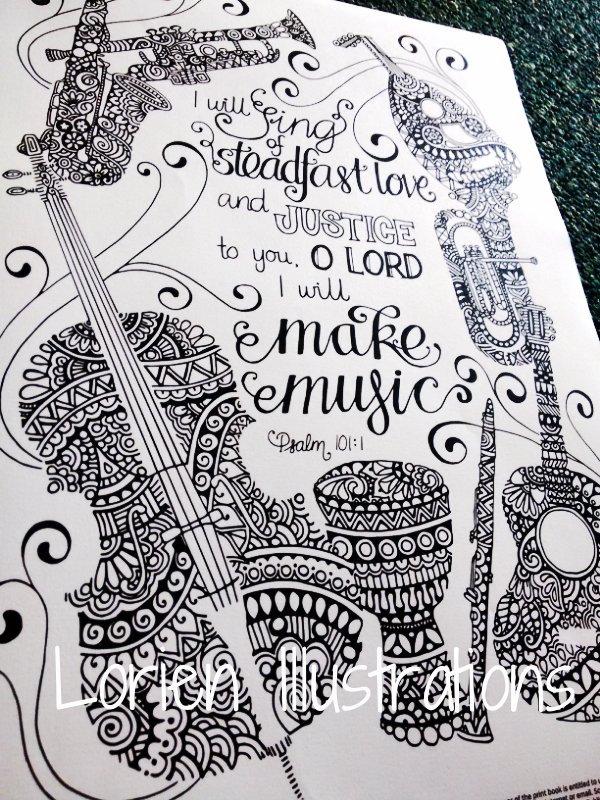 I will Sing
of
steadfast love
and JUSTICE
to you, O LORD
I will
make
music
Psalm 101:1
Lorien Illustrations
of the print book is entitled to